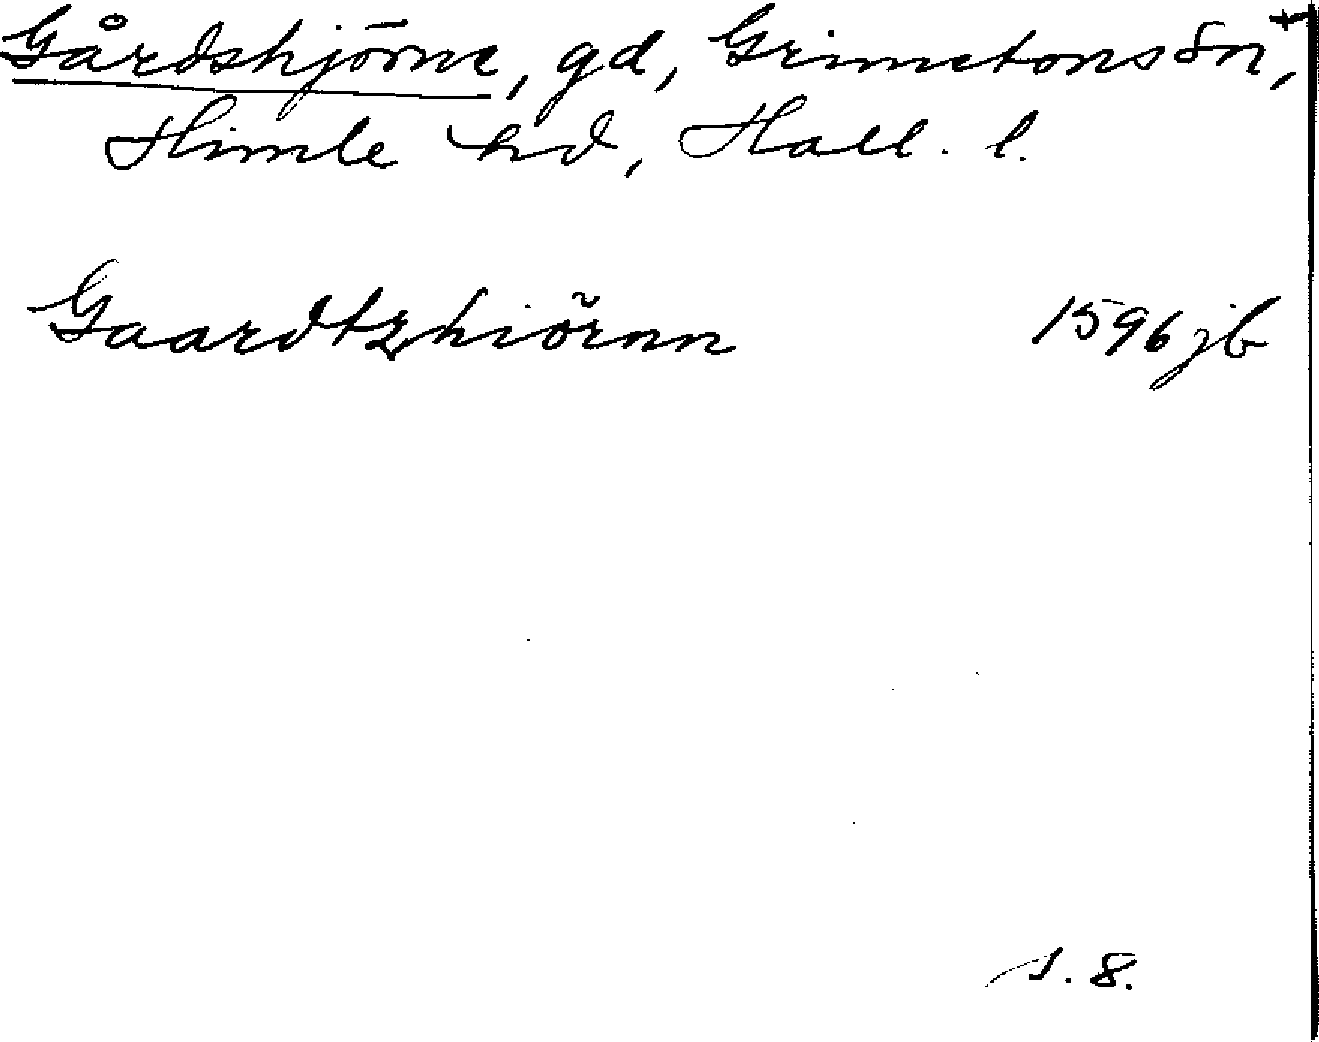 Gårdshjörne, gd, Grimetons sn,
Himle hd, Hall. l.
Gaardtzhiörnn 1596 jb
s. 8.